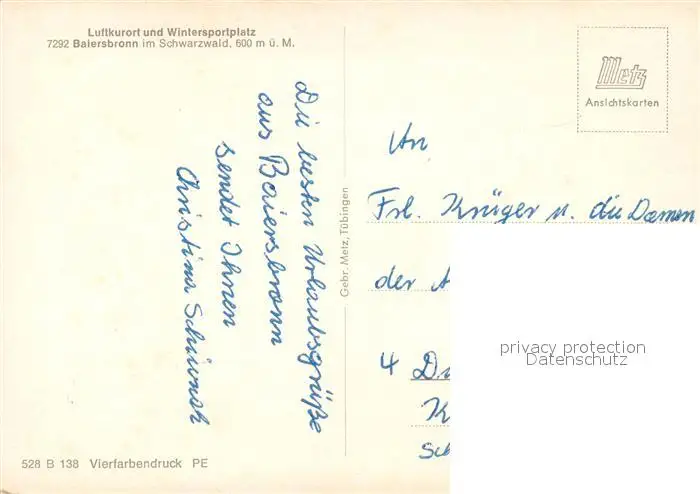 Luftkurort und Wintersportplatz
7292 Baiersbronn im Schwarzwald, 600 m ü. M.
Die besten Urlaubsgrüße
aus Baiersbronn
sendet Ihnen
Christina
Gebr. Metz, Tübingen
Metz
Ansichtskarten
An
Frl. Krüger u. die Damen
der A
4 D
K
Sch
privacy protection
Datenschutz
528 B 138 Vierfarbendruck PE